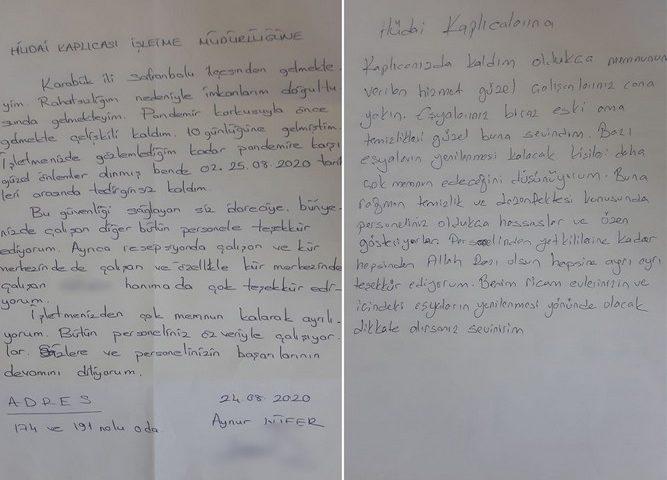 HÜDAİ KAPLICASI İŞLETME MÜDÜRLÜĞÜNE
Karabük ili Safranbolu ilçesinden gelmekte
yim. Rahatsızlığım nedeniyle imkanlarım doğrultu
sunda gelmekteyim. Pandemir korkusuyla önce
gelmekte çelişkili kaldım. 10 günlüğüne gelmiştim.
İşletmenizde gözlemlediğim kadar pandemire karşı
güzel önlemler alınmış bende 02-25.08.2020 tarih
leri arasında tedirginsiz kaldım.
Bu güvenliği sağlayan siz idareciye, bünye-
nizde çalışan diğer bütün personele teşekkür
ediyorum. Ayrıca resepsiyonda çalışan ve kür
merkezinde de çalışan ve özellikle kür merkezinde
çalışan hanıma da çok teşekkür edi-
yorum.
İşletmenizden çok memnun kalarak ayrılı-
yorum. Bütün personeliniz özveriyle çalışıyor-
lar. Sizlere ve personelinizin başarılarının
devamını diliyorum.
ADRES
174 ve 191 nolu oda
24.08.2020
Aynur NİFER
Hüdai Kaplıcalarına
Kaplıcanızda kaldım oldukca memnunum
verilen hizmet güzel çalışanlarınız cana
yakın. Eşyalarınız biraz eski ama
temizlikleri güzel buna sevindim. Bazı
eşyaların yenilenmesi kalacak kişileri daha
çok memnun edeceğini düşünüyorum. Buna
rağmen temizlik ve dezenfektesi konusunda
personeliniz oldukca hassaslar ve özen
gösteriyorlar. Personelinden yetkililerine kadar
hepsinden Allah Razı olsun hepsine ayrı ayrı
teşekkür ediyorum. Benim ricam evlerinizin ve
içindeki eşyaların yenilenmesi yönünde olacak
dikkate alırsanız sevinirim